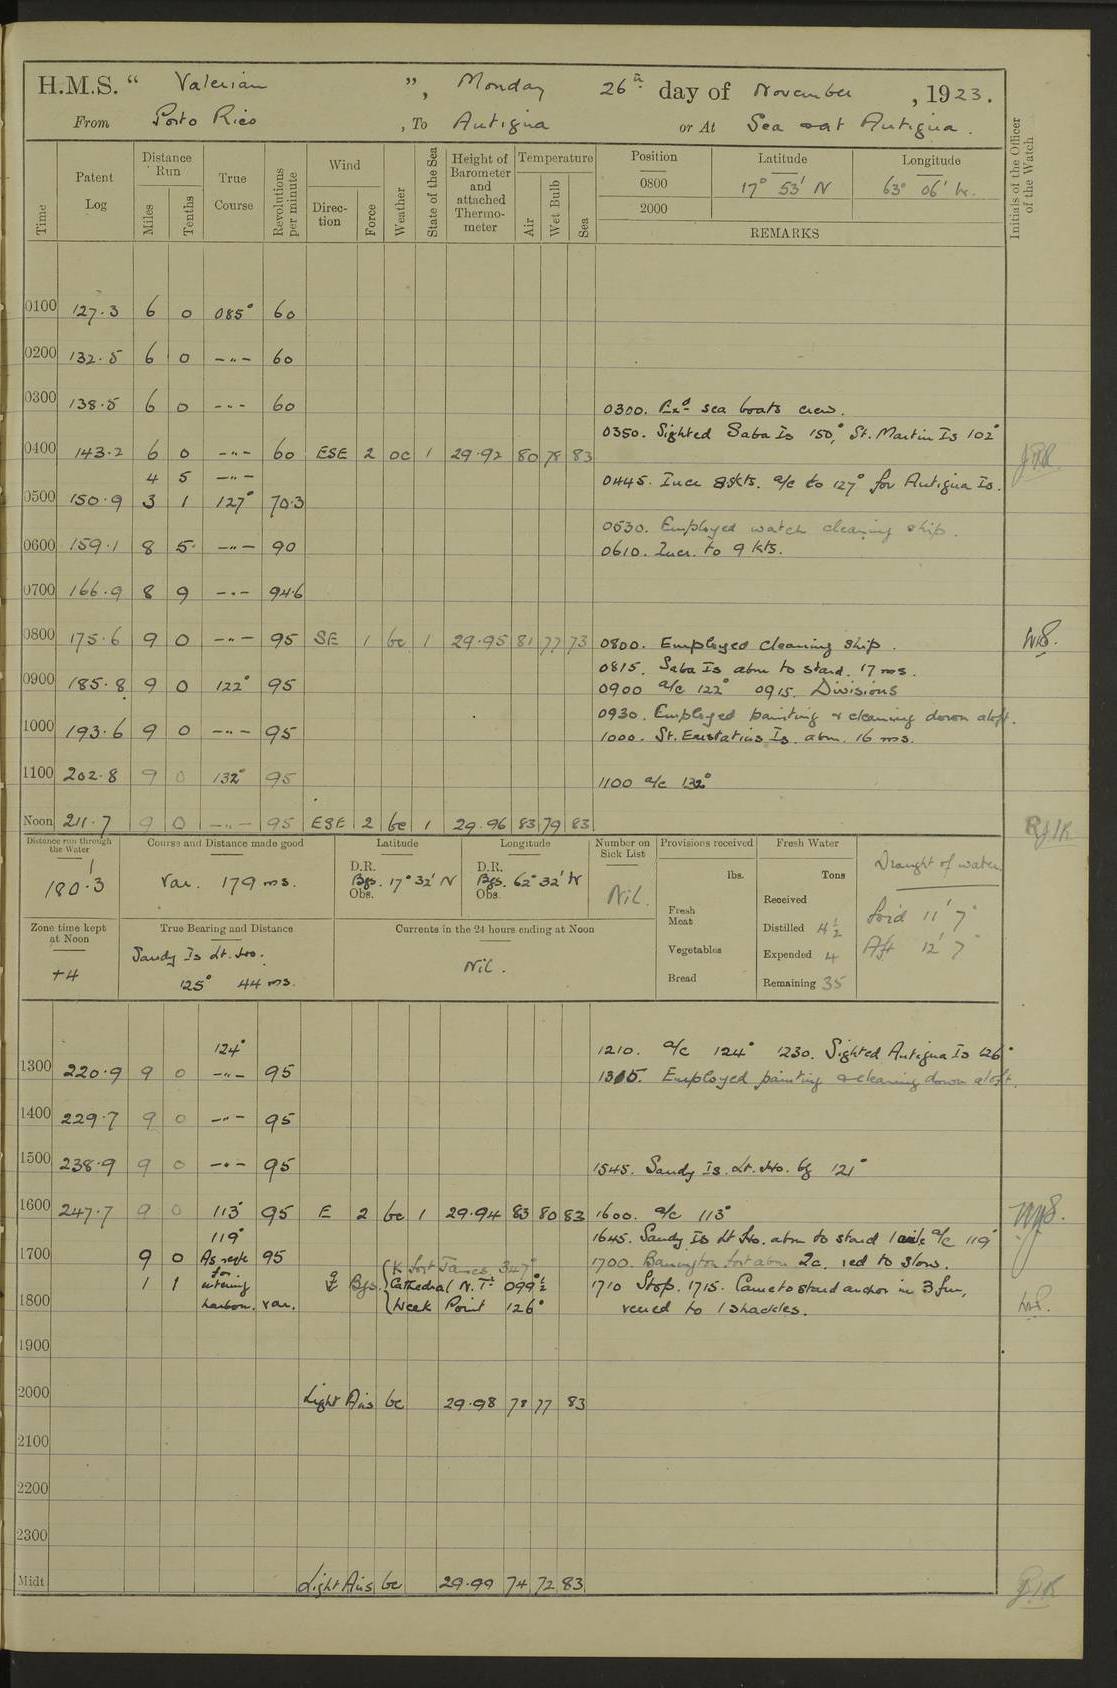 H.M.S. “ Valerian ”, Monday 26th day of November , 1923.
From Porto Rico , To Antigua or At Sea & at Antigua.
Time
Patent Log
Distance Run
Miles
Tenths
True Course
Revolutions per minute
Wind
Direction
Force
Weather
State of the Sea
Height of Barometer and attached Thermometer
Temperature
Air
Wet Bulb
Sea
Position
0800
2000
Latitude
17° 53' N
Longitude
63° 06' W.
REMARKS
Initials of the Officer of the Watch
0100 127.3 6 0 085° 60
0200 132.5 6 0 -"- 60
0300 138.5 6 0 -"- 60 0300. Exd sea boats crew.
0350. Sighted Saba Is 150°, St. Martin Is 102°
0400 143.2 6 0 -"- 60 ESE 2 oc 1 29.92 80 78 83
4 5 -"- 0445. Incr 8 kts. a/c to 127° for Antigua Is.
0500 150.9 3 1 127° 70.3
0530. Employed watch cleaning ship.
0600 159.1 8 5 -"- 90 0610. Incr. to 9 kts.
0700 166.9 8 9 -"- 94.6
0800 175.6 9 0 -"- 95 SE 1 bc 1 29.95 81 77 73 0800. Employed cleaning ship.
0815. Saba Is abm to starb. 17 ms.
0900 185.8 9 0 122° 95 0900 a/c 122° 0915. Divisions
0930. Employed painting & cleaning down aloft.
1000 193.6 9 0 -"- 95 1000. St. Eustatius Is. abm. 16 ms.
1100 202.8 9 0 132° 95 1100 a/c 132°
Noon 211.7 9 0 -"- 95 ESE 2 bc 1 29.96 83 79 83
Distance run through the Water
180.3
Course and Distance made good
Var. 179 ms.
Latitude
D.R.
Bgs. 17° 32' N
Obs.
Longitude
D.R.
Bgs. 62° 32' W
Obs.
Number on Sick List
Nil.
Provisions received
lbs.
Fresh Meat
Vegetables
Bread
Fresh Water
Tons
Received
Distilled 4½
Expended 4
Remaining 35
Draught of water
Ford 11' 7"
Aft 12' 7"
Zone time kept at Noon
+4
True Bearing and Distance
Sandy Is Lt. Ho.
125° 44 ms.
Currents in the 24 hours ending at Noon
Nil.
124° 1210. a/c 124° 1230. Sighted Antigua Is 126°
1300 220.9 9 0 -"- 95 1315. Employed painting & cleaning down aloft.
1400 229.7 9 0 -"- 95
1500 238.9 9 0 -"- 95 1545. Sandy Is. Lt. Ho. bg 121°
1600 247.7 9 0 113° 95 E 2 bc 1 29.94 83 80 83 1600. a/c 113°
119° 1645. Sandy Is Lt Ho. abm to starb 1 mile a/c 119°
1700 9 0 As reqte 95 1700. Barrington fort abm 2c. red to slow.
1 1 for entering harbour. var.
Bgs. { Fort James 347°
Cathedral N. Tr 099°½
Week Point 126°
1710 Stop. 1715. Came to starb anchor in 3 fm,
1800 veered to 1 shackles.
1900
2000 Light Airs bc 29.98 78 77 83
2100
2200
2300
Midt Light Airs bc 29.99 74 72 83